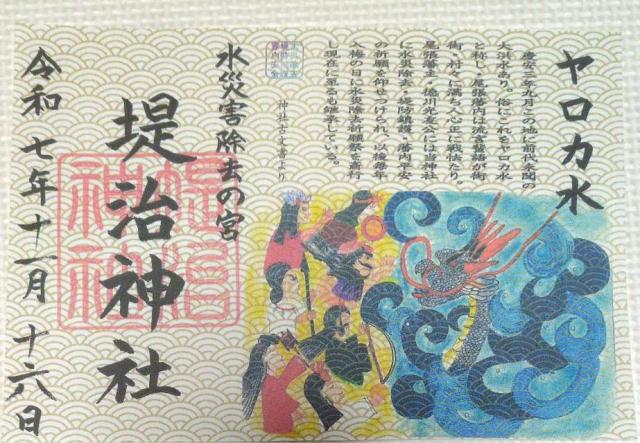 ヤロカ水
慶安三年九月この地に前代未聞の
大洪水あり。俗にこれをヤロカ水
と称し、尾張藩内は流言蜚語が街
街、村々に満ち、心正に戦怯たり。
尾張藩主、徳川光友公には当神社
に水災除去、堤防鎮護、藩内平安
の祈願を仰せつけられ、以後毎年
入梅の日に水災除去祈願祭を斎行
し現在に至るも継承している。
神社古文書より
水災害除去の宮
堤治神社
堤治
神社
令和七年十一月十六日